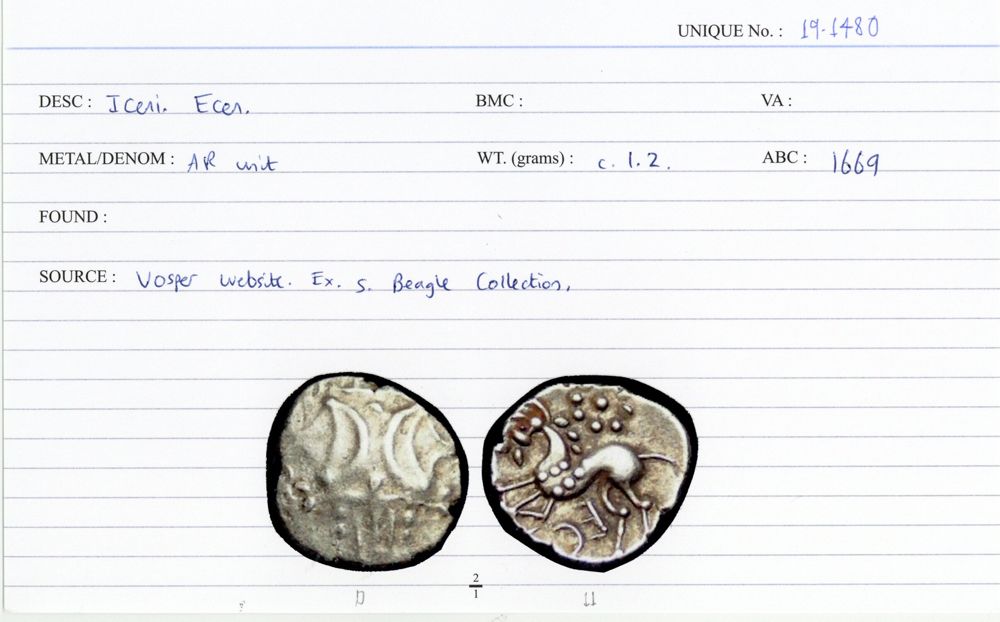 UNIQUE No. : 19-1480
DESC : Iceni. Ecen. BMC : VA :
METAL/DENOM : AR unit WT. (grams) : c. 1.2. ABC : 1669
FOUND :
SOURCE : Vosper website. Ex. S. Beagle Collection.
2
1